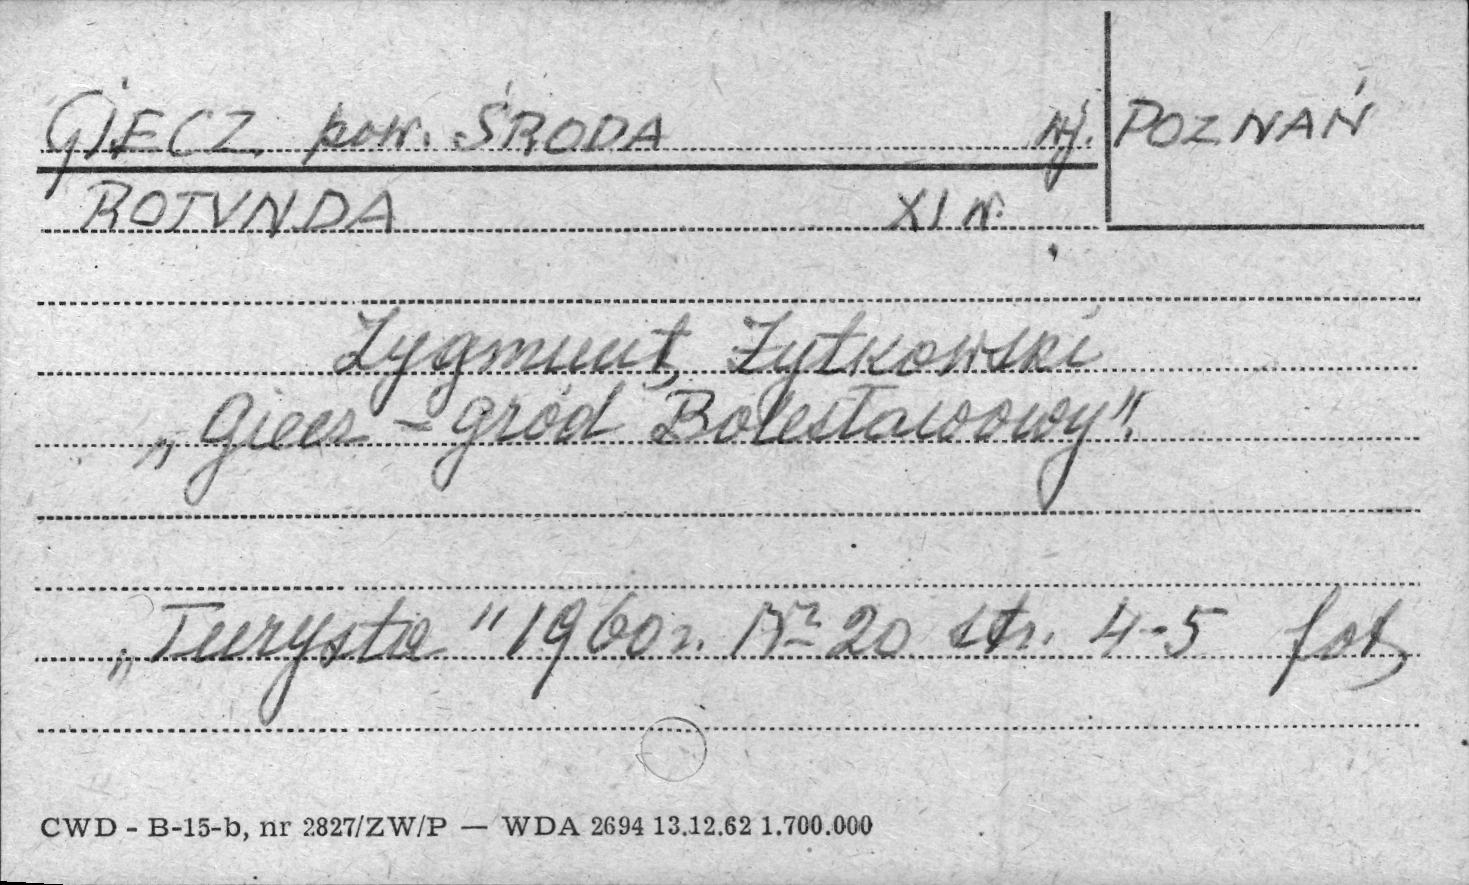 GIECZ. pow. ŚRODA wj. POZNAŃ
ROTUNDA XI w.
Zygmunt, Żytkowski
„Giecz - gród Bolesławowy".
„Turysta" 1960 r. Nr 20 str. 4-5 fot,
CWD - B-15-b, nr 2827/ZW/P — WDA 2694 13.12.62 1.700.000